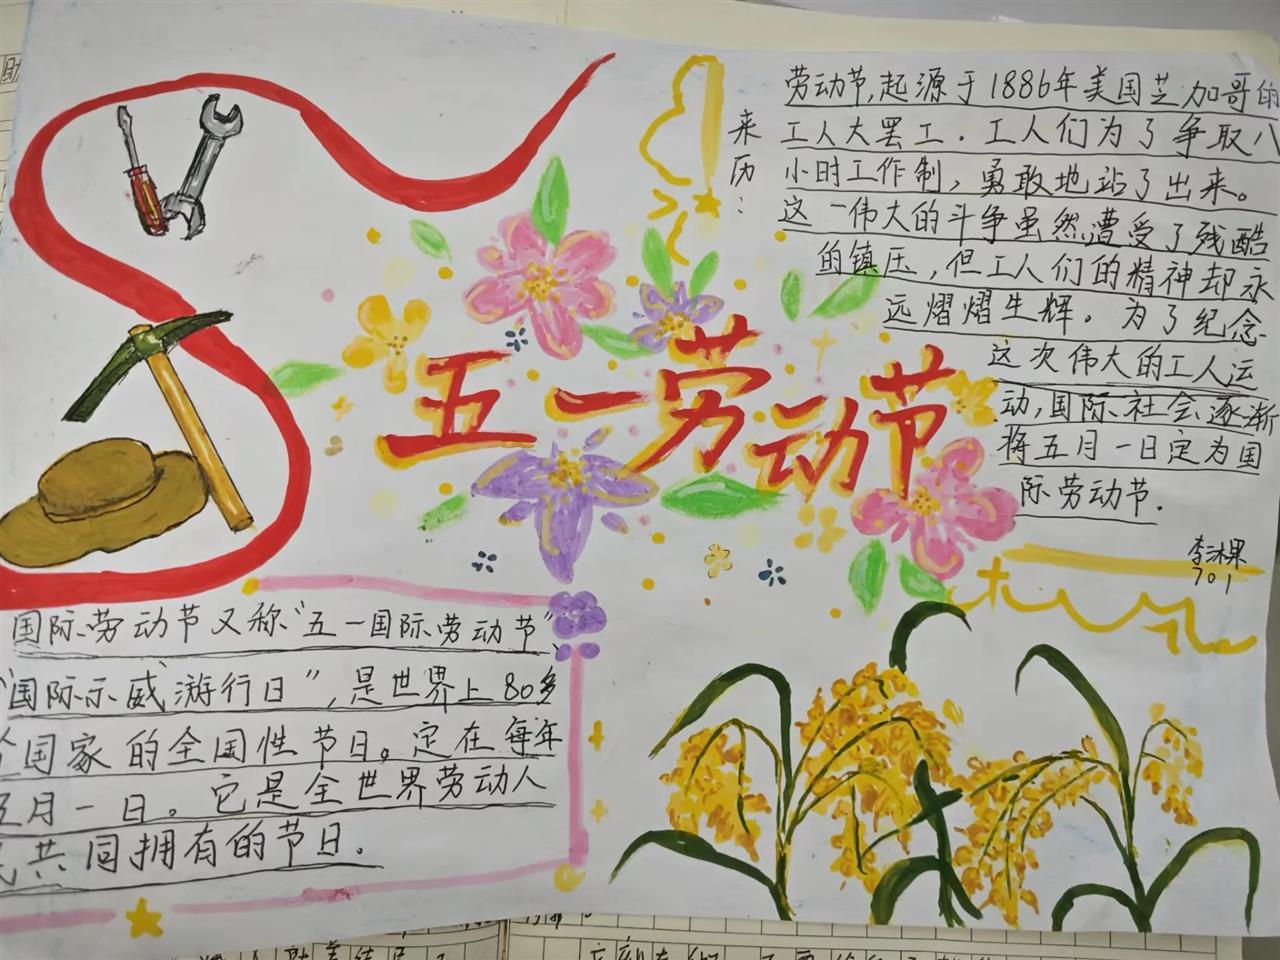 五一劳动节
来历：
劳动节，起源于1886年美国芝加哥的
工人大罢工．工人们为了争取八
小时工作制，勇敢地站了出来。
这一伟大的斗争虽然遭受了残酷
的镇压，但工人们的精神却永
远熠熠生辉。为了纪念
这次伟大的工人运
动，国际社会逐渐
将五月一日定为国
际劳动节．
701
国际劳动节又称“五一国际劳动节”、
“国际示威游行日”，是世界上80多
个国家的全国性节日。定在每年
五月一日。它是全世界劳动人
民共同拥有的节日．